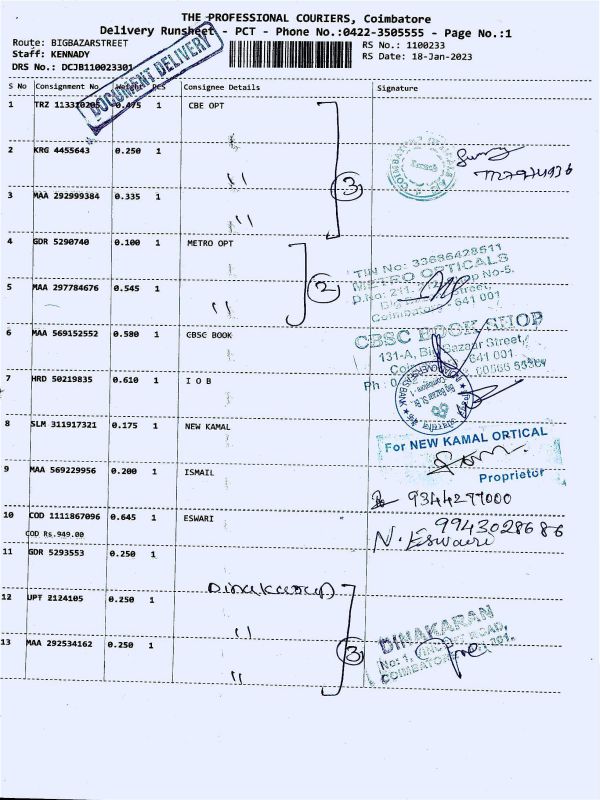 THE PROFESSIONAL COURIERS, Coimbatore
Delivery Runsheet - PCT - Phone No.:0422-3505555 - Page No.:1
Route: BIGBAZARSTREET
RS No.: 1100233
Staff: KENNADY
RS Date: 18-Jan-2023
DRS No.: DCJB110023301
DOCUMENT DELIVERY
S No Consignment No. Weight PCS Consignee Details Signature
1 TRZ 0.475 1 CBE OPT
2 KRG 4455643 0.250 1 "
3 MAA 292999384 0.335 1 "
3
4 GDR 5290740 0.100 1 METRO OPT
5 MAA 297784676 0.545 1 "
2
TIN No: 33686428511
METRO OPTICALS
Big Bazaar Street,
Coimbatore - 641 001
6 MAA 569152552 0.580 1 CBSC BOOK
CBSC BOOK SHOP
131-A, Big Bazaar Street,
641 001.
7 HRD 50219835 0.610 1 I O B
8 SLM 311917321 0.175 1 NEW KAMAL
For NEW KAMAL ORTICAL
Proprietor
9 MAA 569229956 0.200 1 ISMAIL
9344297000
10 COD 1111867096 0.645 1 ESWARI
COD Rs.949.00
9943028686
N. Eswari
11 GDR 5293553 0.250 1 Dinakaran
12 UPT 2124105 0.250 1 "
13 MAA 292534162 0.250 1 "
3
DINAKARAN
No: 1, ROAD,
COIMBATORE